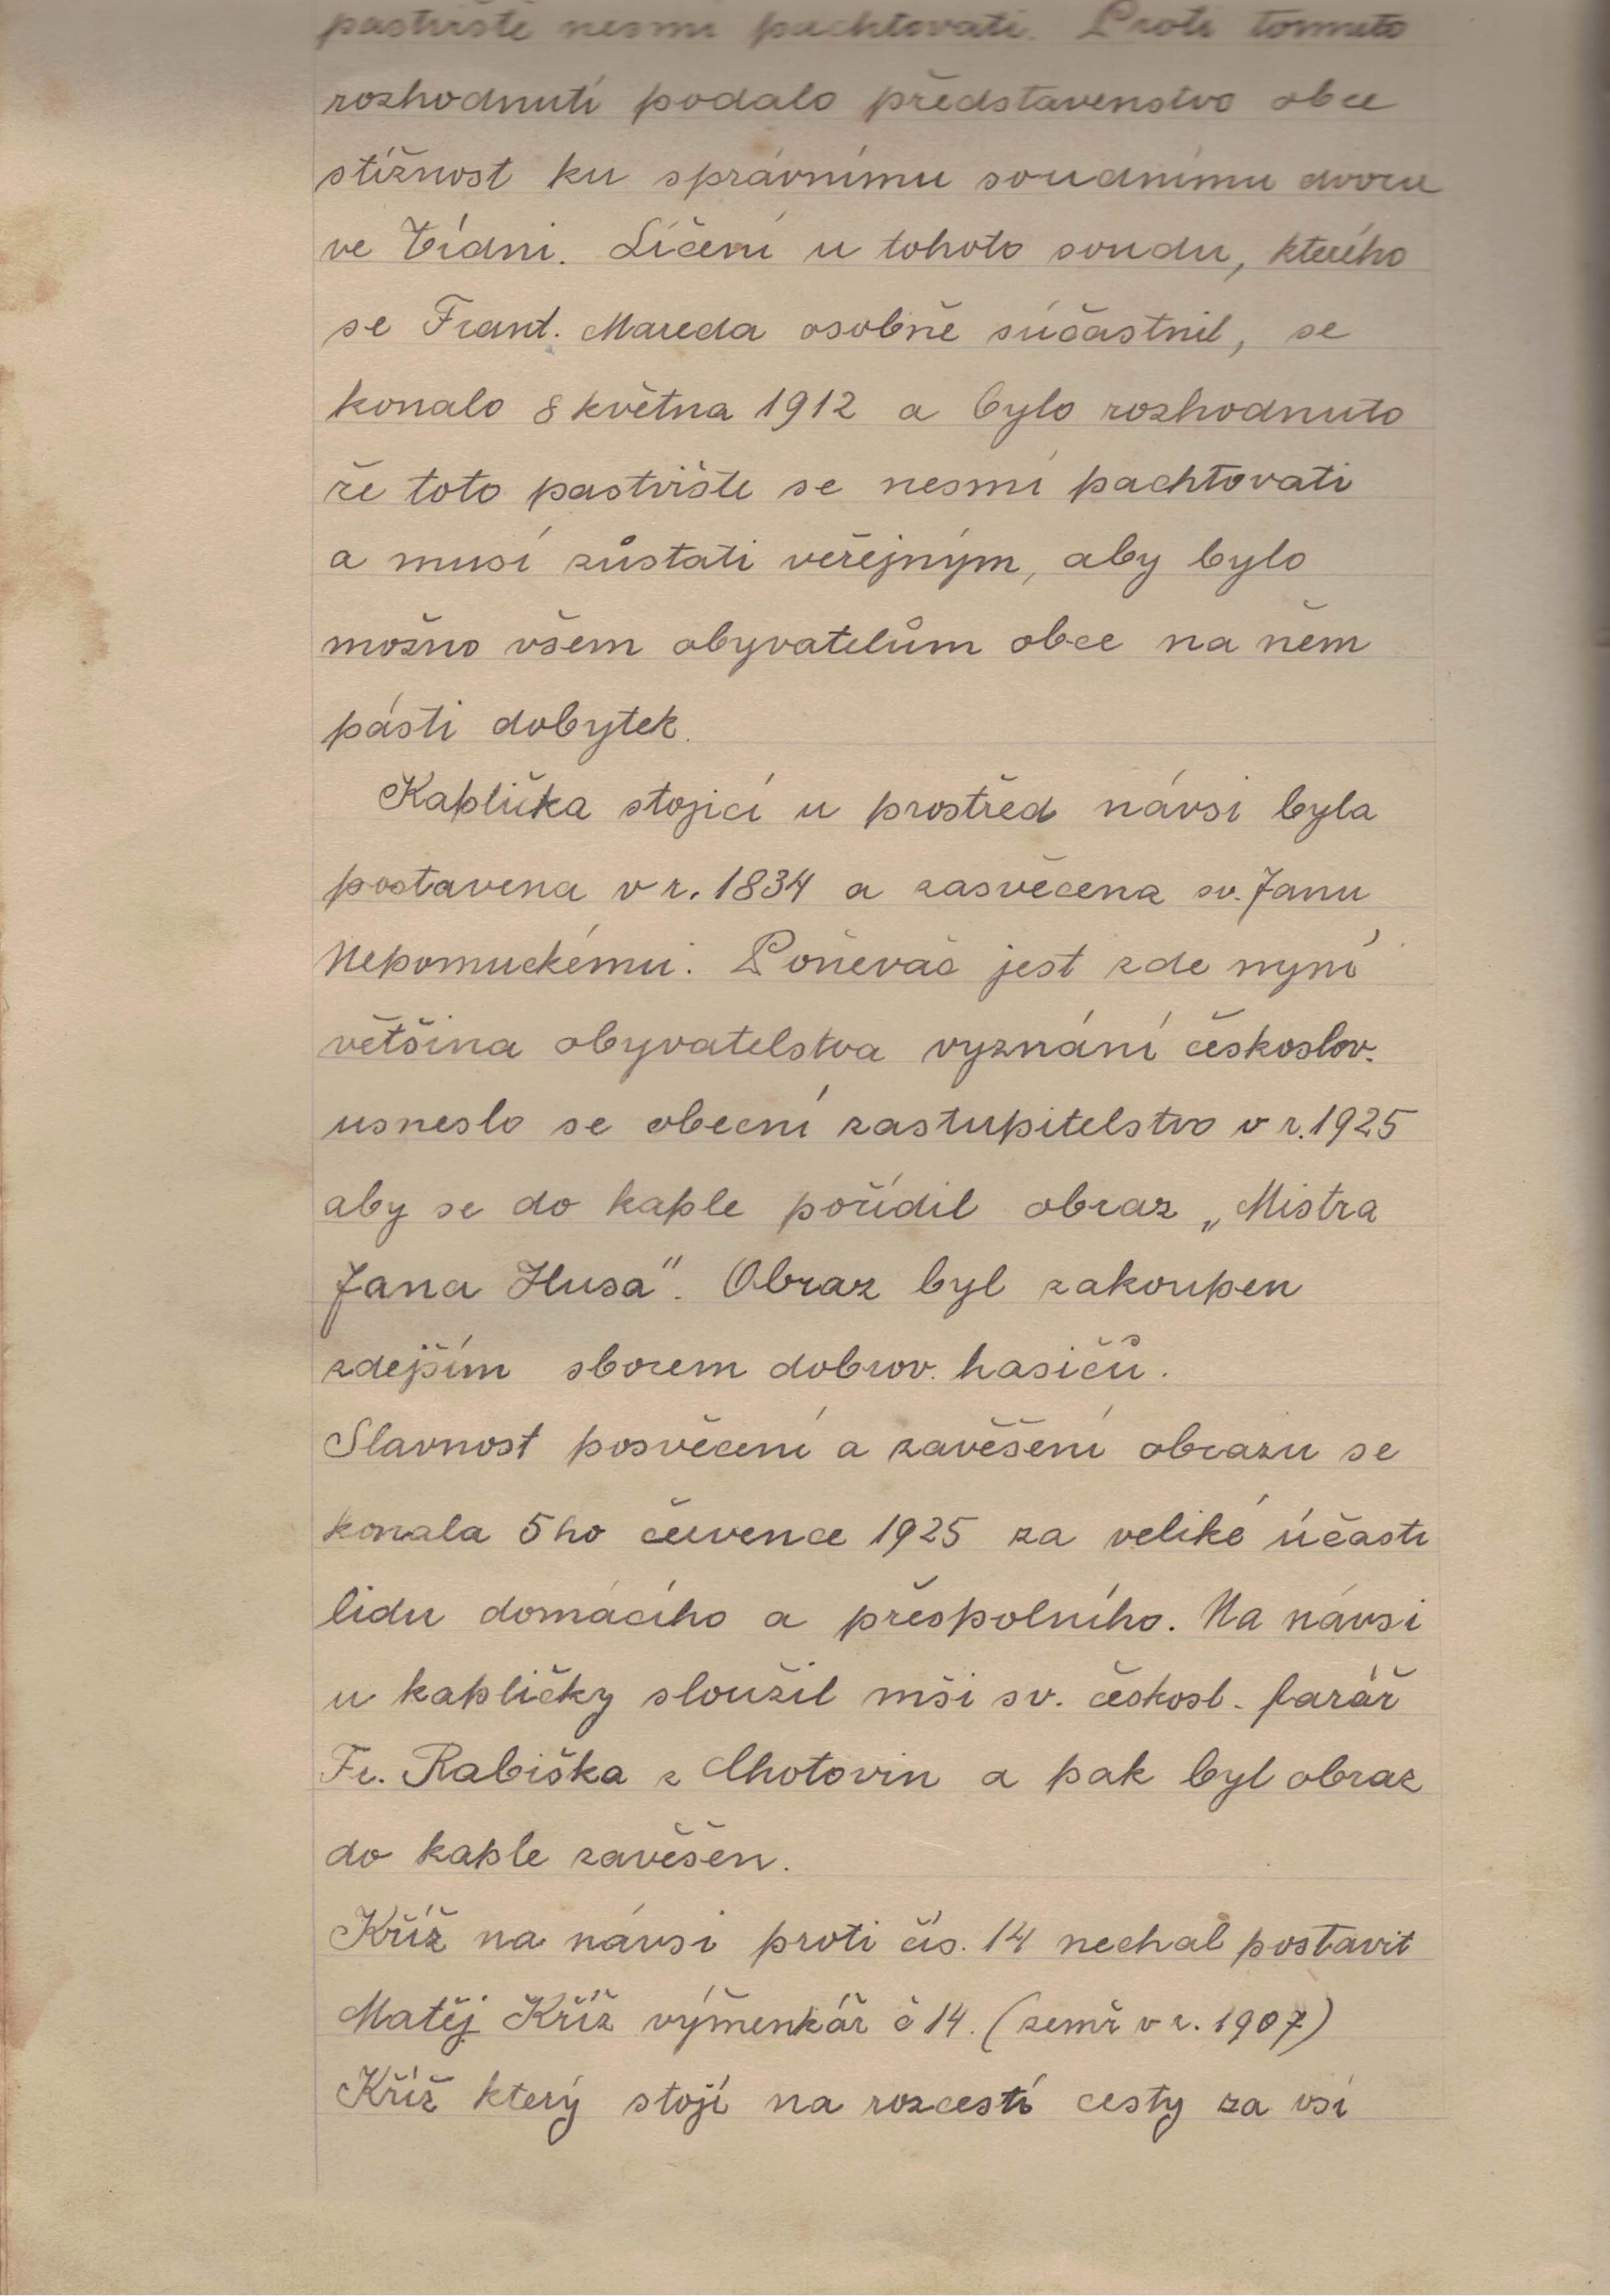 pastviště nesmí pachtovati. Proti tomuto
rozhodnutí podalo představenstvo obce
stížnost ku správnímu soudnímu dvoru
ve Vídni. Líčení u tohoto soudu, kterého
se Frant. Mareda osobně súčastnil, se
konalo 8 května 1912 a bylo rozhodnuto
že toto pastviště se nesmí pachtovati
a musí zůstati veřejným, aby bylo
možno všem obyvatelům obce na něm
pásti dobytek.
Kaplička stojící u prostřed návsi byla
postavena v r. 1834 a zasvěcena sv. Janu
Nepomuckému. Poněvač jest zde nyní
většina obyvatelstva vyznání českoslov.
usneslo se obecní zastupitelstvo v r. 1925
aby se do kaple pořídil obraz „Mistra
Jana Husa". Obraz byl zakoupen
zdejším sborem dobrov. hasičů.
Slavnost posvěcení a zavěšení obrazu se
konala 5ho července 1925 za veliké účasti
lidu domácího a přespolního. Na návsi
u kapličky sloužil mši sv. českosl. farář
Fr. Rabiška z Chotovin a pak byl obraz
do kaple zavěšen.
Kříž na návsi proti čís. 14 nechal postavit
Matěj Kříž výměnkář č 14. (zemř v r. 1907)
Kříž který stojí na rozcestí cesty za vsí